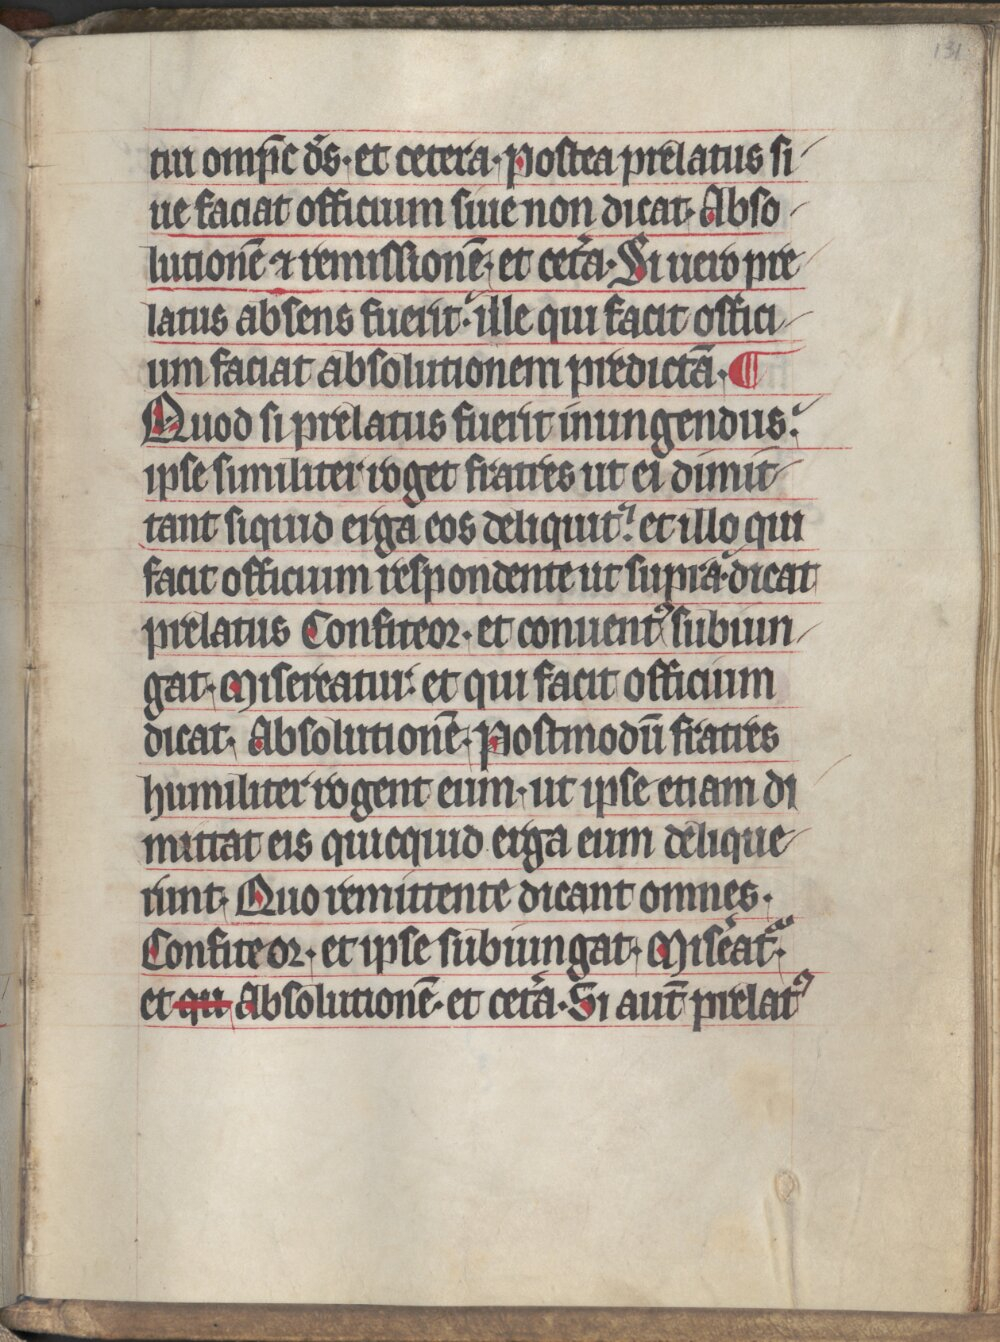 131
tui omp̄c d̄s· et cetera· Postea prelatus si
ue faciat officium siue non dicat· Abso
lutionē ⁊ remissionē· et cet̄a· Si uero pre
latus absens fuerit· ille qui facit offici
um faciat absolutionem predictā· ¶
Quod si prelatus fuerit inungendus·
ipse similiter roget fratres ut ei dimit
tant siquid erga eos deliquit· et illo qui
facit officium respondente ut supra· dicat
prelatus Confiteor· et conuentꝰ subiun
gat· Misereatur· et qui facit officium
dicat· Absolutionē· Postmodū fratres
humiliter rogent eum· ut ipse etiam di
mittat eis quicquid erga eum delique
runt· Quo remittente dicant omnes·
Confiteor· et ipse subiungat· Mis̄eat᷑·
et qu Absolutionē· et cet̄a· Si aut̄ prelatꝰ